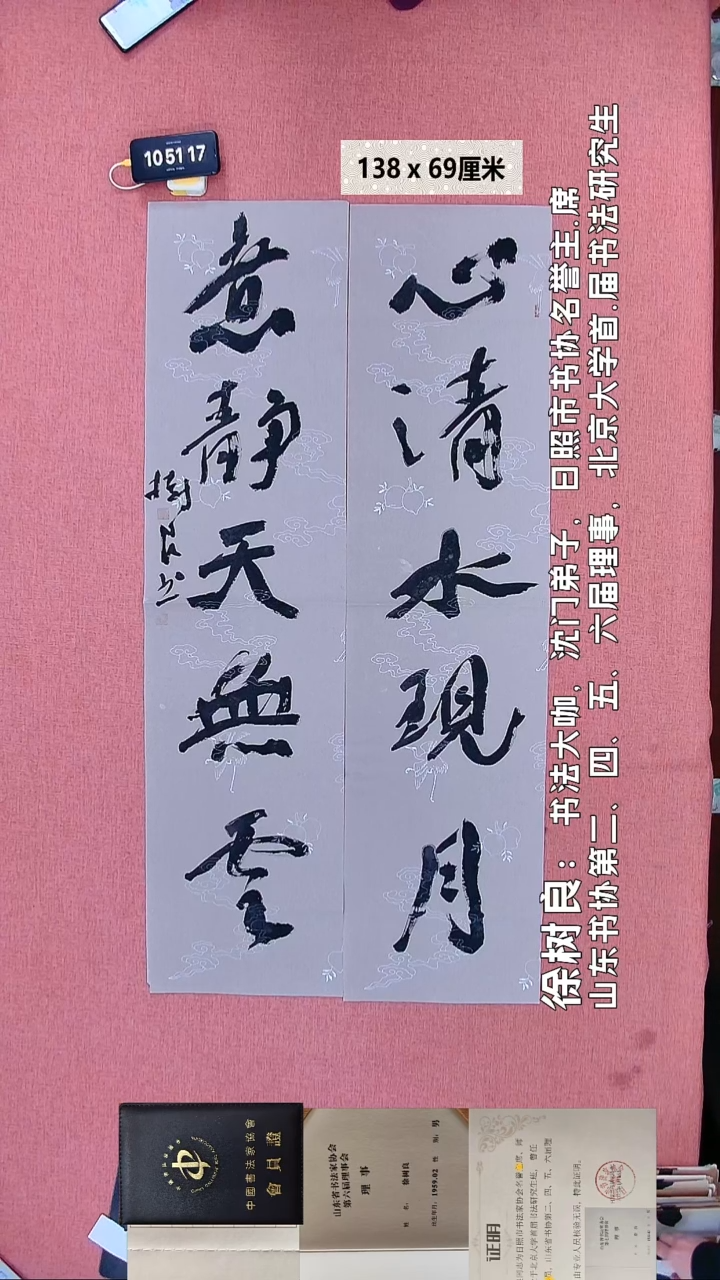 10 51 17
138 x 69厘米
心清水現月
意靜天無雲
樹良书
徐树良：书法大咖，沈门弟子，日照市书协名誉主.席
山东书协第二、四、五、六届理事，北京大学首.届书法研究生
中國書法家協會
會員證
山东省书法家协会
第六届理事会
理 事
姓 名： 徐树良
出生年月：1959.02 性 别：男
证明